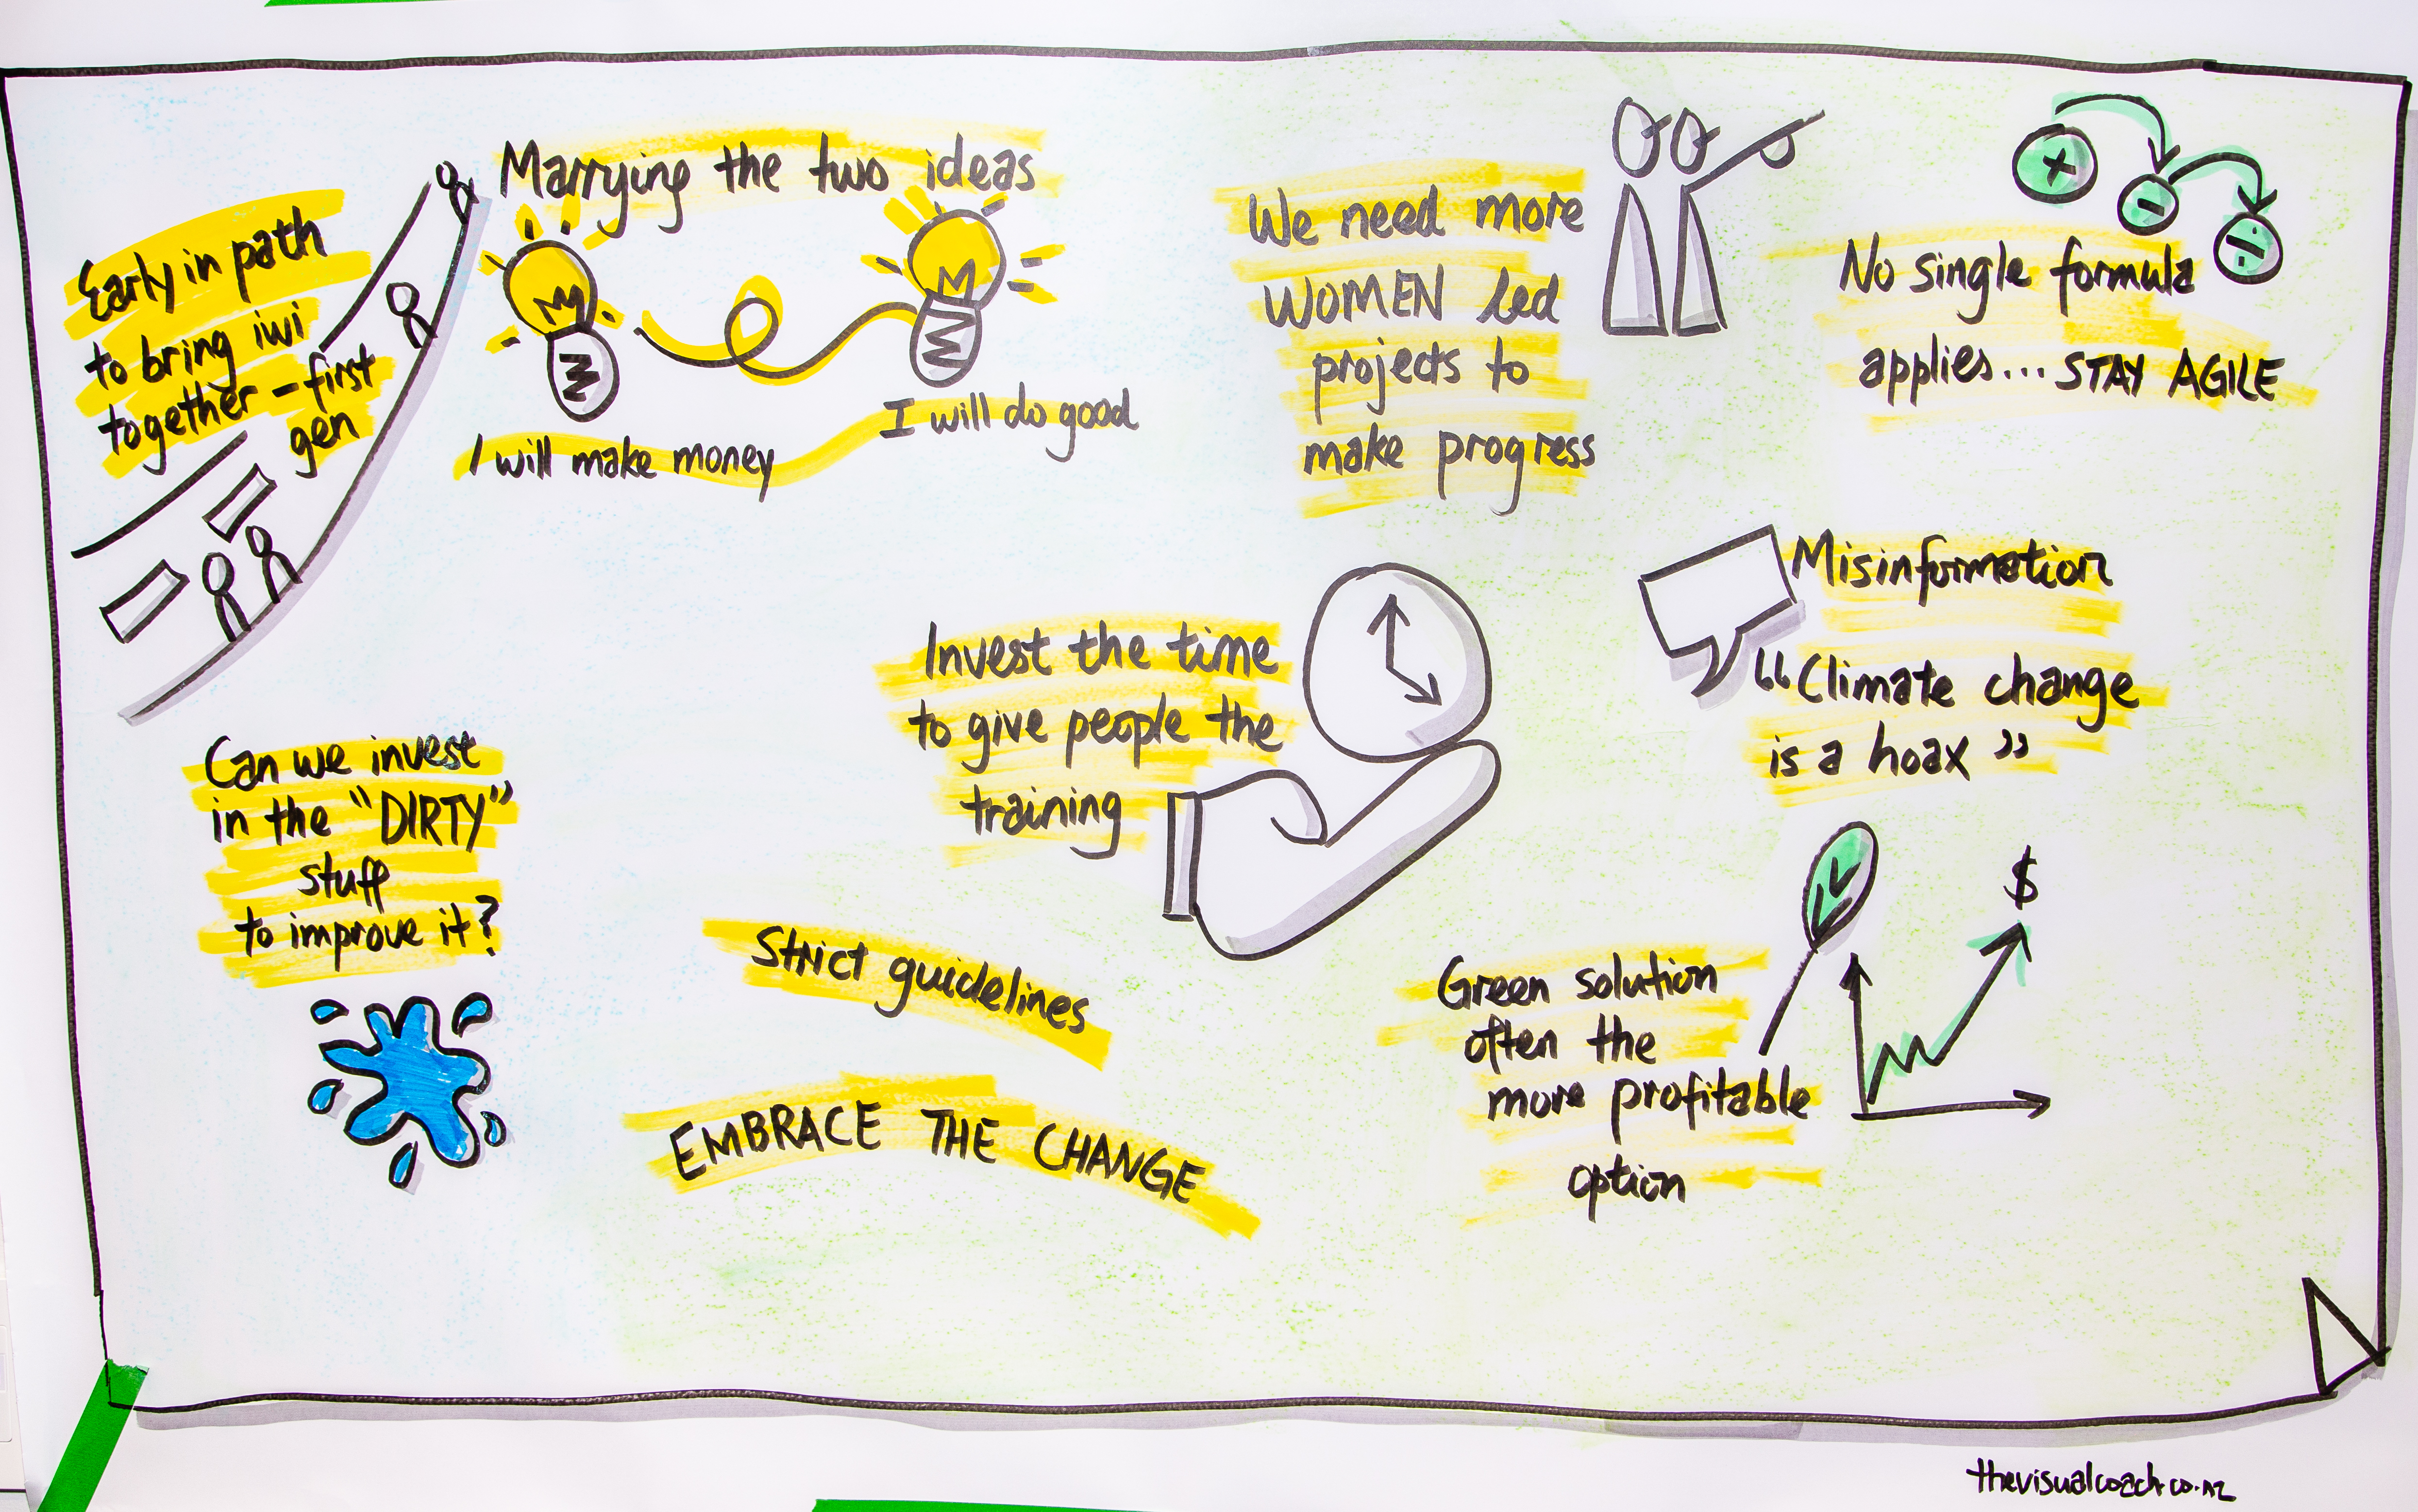 Early in path
to bring iwi
together - first
gen
Marrying the two ideas
I will make money
I will do good
We need more
WOMEN led
projects to
make progress
No single formula
applies... STAY AGILE
Misinformation
"Climate change
is a hoax"
Invest the time
to give people the
training
Can we invest
in the "DIRTY"
stuff
to improve it?
Strict guidelines
EMBRACE THE CHANGE
Green solution
often the
more profitable
option
$
thevisualcoach.co.nz